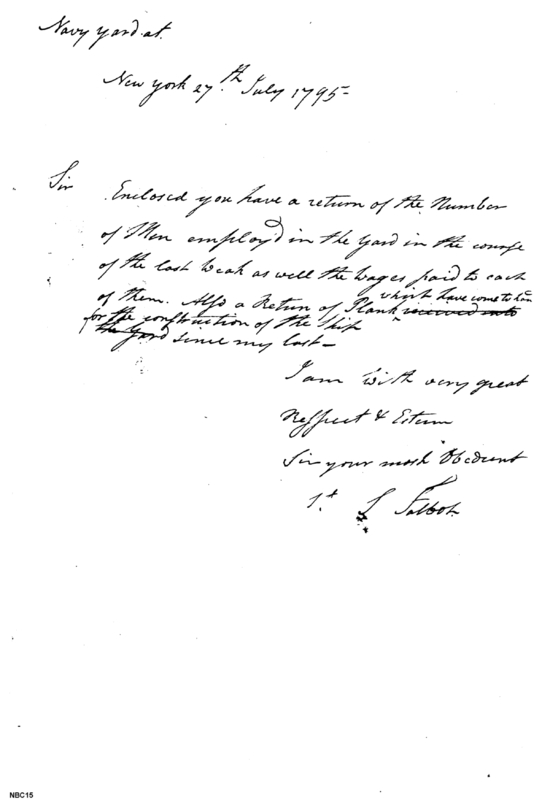 Navy yard at
New york 27th July 1795-
Sir Enclosed you have a return of the Number
of Men employ'd in the Yard in the course
of the last Weak as well the Wages paid to each
which have come to han
of them. Also a Return of Plank received into
for the construction of the Ship
the Yard since my last-
I am with very great
Respect & Esteem
Sir your most Obedient
St. S Talbot
NBC15